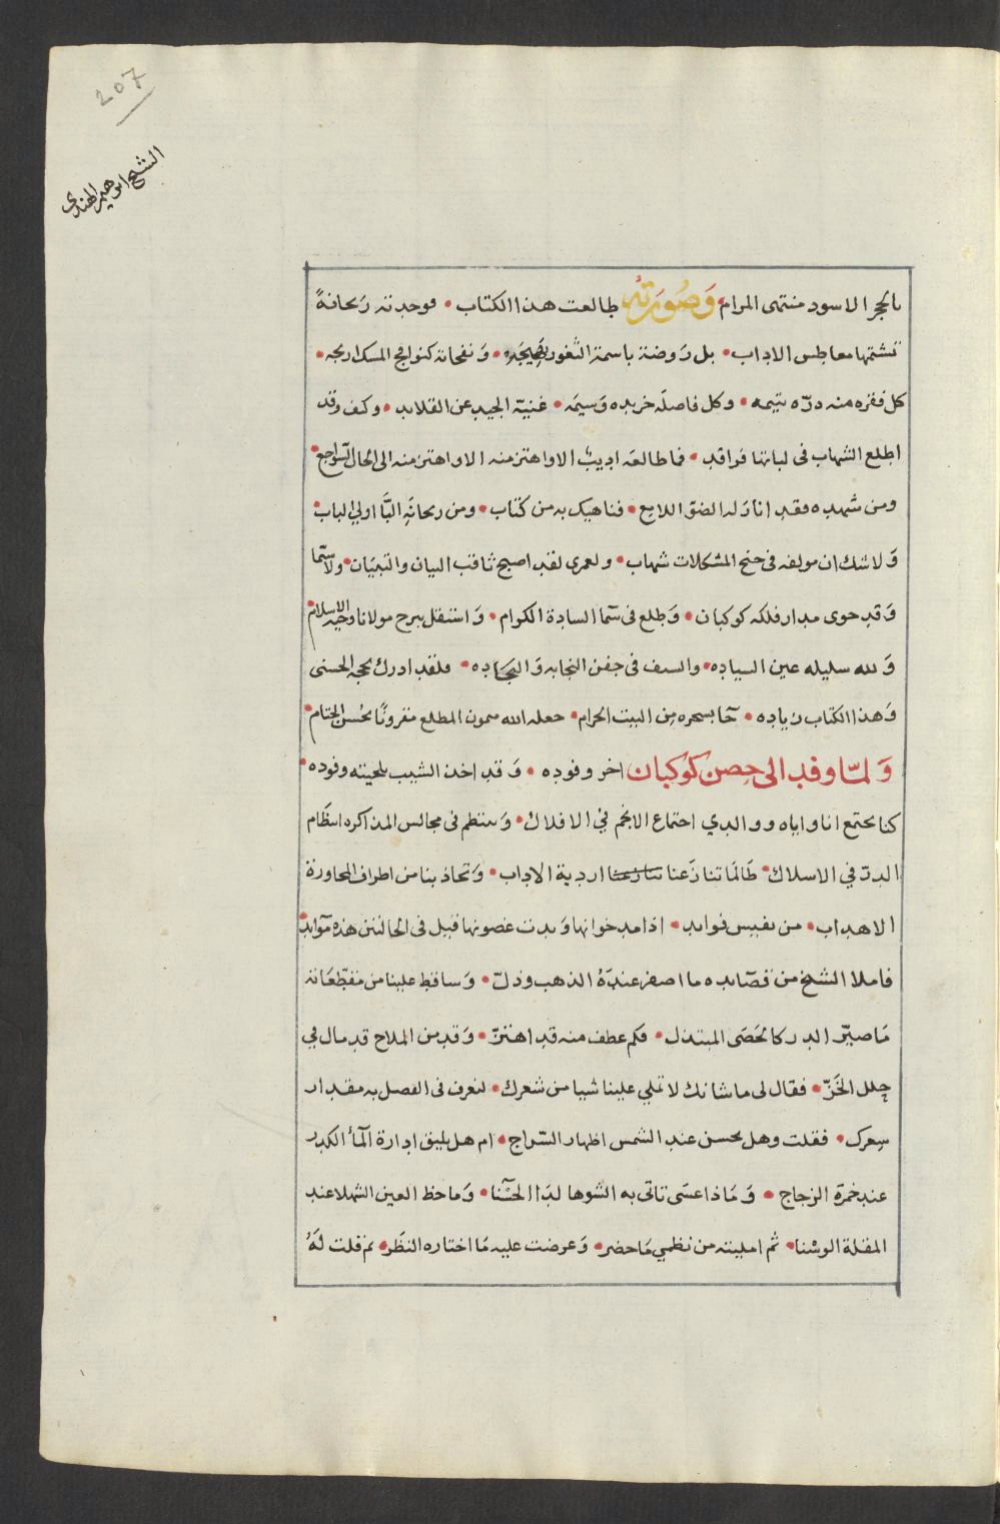 207
الشيخ ابرهيم الهندي
بالحجر الاسود منتهى المرام وَصُورَتُه طالعت هذا الكتاب • فوجدته رَيحانةً
تشتمها معاطس الاداب • بل رَوضة باسمة الثغور بَهيجَه • وَنفحاته كنوافح المسك اريجه •
كل فقره منه درّه يتيمه • وكل فاصلَه خريده وَسيمَه • غنيّة الجيد عن القلايد • وكيف وقد
اطلع الشهاب فى لباتها فراقد • فما طالعَه اديبٌ الا واهتز منه الا واهتز منه الى الحال
ومن شهده فقد انارَ له الضؤ اللامع • فناهيك به من كتاب • ومن ريحانةٍ البَّا اولي الباب
وَلا شك ان مولفه فى جنح المشكلات شهاب • ولعمرى لقد اصبح ثاقب البيان والتبيَان • ولا سيّما
وَقد حوى مدار فلكه كوكبان • وَطلع فى سَما السادة الكرام • وَاستقل ببرج مولانا وجيه الاسلام
وَلله سليله عين السياده • والسيف فى جفن النجابه وَالنجاده • فلقد ادرك بحجه الحسنى
وَهذا الكتاب زياده • حَا بسحره مِن البيت الحرام • جعله الله ميمون المطلع مقرونًا بحُسن الختام •
وَلمّا وفد الى حِصن كوكبان اخر وفوده • وَقد اخذ الشيب بلحيته وفوده •
كنا نجتمع انا واياه ووالدي اجتماع الانجم في الافلاك • وَننتظم فى مجالس المذاكره انتظَام
الدرّ في الاسلاك • طَالمَا تنازَعنا اردية الاداب • وَتجاذبنا من اطراف المحاورة
الاهداب • من نفيس فوايد • اذا مد خوانها وَبدت غصونها قيل فى الحالتين هذه موَايد
فاملا الشيخ من قصَايده ما اصفرّ عندَهُ الذهب وذلّ • وَساقط علينا من مقطّعَاته
مَا صيّر الدر كالحَصَى المبتذل • فكم عطف منه قد اهتزّ • وَقد من الملاح قد مال في
حِلل الخَزّ • فقال لى ما شانك لا تملي علينا شيا من شعرك • لنعرف فى الفصل به مقدار
سِعرك • فقلت وهل يحسن عند الشمس اظهار السّراج • ام هل يليق ادارة المَأ الكدر
عند خمرة الزجاج • وَمَاذا عسَى تاتى به الشوها لدَا الحَسْنا • وَما حظ العين الشهلا عند
المقلة الوسْنا • ثم امليته من نظمي مَا حضر • وَعرضت عليه مَا اختاره النظَر • ثم قلت لَهُ